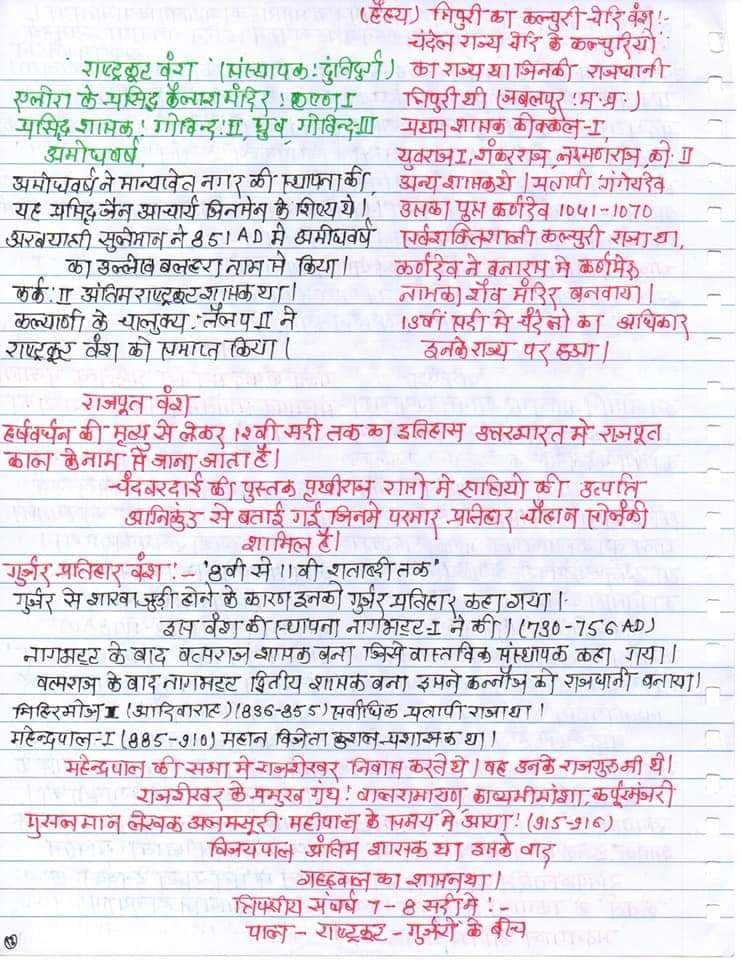 राष्ट्रकूट वंश : (संस्थापक : दंतिदुर्ग)
एलोरा के प्रसिद्ध कैलाश मंदिर : कृष्ण I
प्रसिद्ध शासक : गोविन्द : II, ध्रुव, गोविन्द-III
अमोघवर्ष
अमोघवर्ष ने मान्यखेत नगर की स्थापना की
यह प्रसिद्ध जैन आचार्य जिनसेन के शिष्य थे।
अरबयात्री सुलेमान ने 851 AD मे अमोघवर्ष
का उल्लेख बलहरा नाम से किया।
कर्क : II अंतिम राष्ट्रकूट शासक था।
कल्याणी के चालुक्य : तैलप II ने
राष्ट्रकूट वंश को समाप्त किया।
(हैहय) त्रिपुरी का कल्चुरी चेदि वंश :-
चंदेल राज्य चेदि के कल्चुरियो
का राज्य था जिनकी राजधानी
त्रिपुरी थी (जबलपुर : म.प्र.)
प्रथम शासक कोक्कल-I,
युवराज I, शंकरराज, लक्ष्मणराज, को. II
अन्य शासक थे। प्रतापी गंगेयदेव
उसका पुत्र कर्णदेव 1041-1070
सर्वशक्तिशाली कल्चुरी राजा था,
कर्णदेव ने बनारस मे कर्णमेरु
नामका शैव मंदिर बनवाया।
13वी सदी मे चंदेलो का अधिकार
इनके राज्य पर हुआ।
राजपूत वंश
हर्षवर्धन की मृत्यु से लेकर 12वी सदी तक का इतिहास उत्तरभारत मे राजपूत
काल के नाम से जाना जाता है।
चंदबरदाई की पुस्तक पृथ्वीराज रासो मे क्षत्रियो की उत्पत्ति
अग्निकुंड से बताई गई जिनमे परमार-प्रतिहार-चौहान सोलंकी
शामिल है।
गुर्जर प्रतिहार वंश :- '8वी से 11वी शताब्दी तक'
गुर्जर से शाखा जुड़ी होने के कारण इनको गुर्जर प्रतिहार कहा गया।
इस वंश की स्थापना नागभट्ट-I ने की। (730-756 AD)
नागभट्ट के बाद वत्सराज शासक बना जिसे वास्तविक संस्थापक कहा गया।
वत्सराज के बाद नागभट्ट द्वितीय शासक बना इसने कन्नौज को राजधानी बनाया।
मिहिरभोज I (आदिवाराह) (836-855) सर्वाधिक प्रतापी राजा था।
महेन्द्रपाल-I (885-910) महान विजेता कुशल-प्रशासक था।
महेन्द्रपाल की सभा मे राजशेखर निवास करते थे। वह उनके राजगुरु भी थे।
राजशेखर के प्रमुख ग्रंथ : बालरामायण, काव्यमीमांसा, कर्पूरमंजरी
मुसलमान लेखक अलमसूदी महीपाल के समय मे आया! (915-916)
विजयपाल अंतिम शासक था इसके बाद
गहड़वाल का शासन था।
त्रिपक्षीय संघर्ष 7-8 सदी मे :-
पाल - राष्ट्रकूट - गुर्जरो के बीच